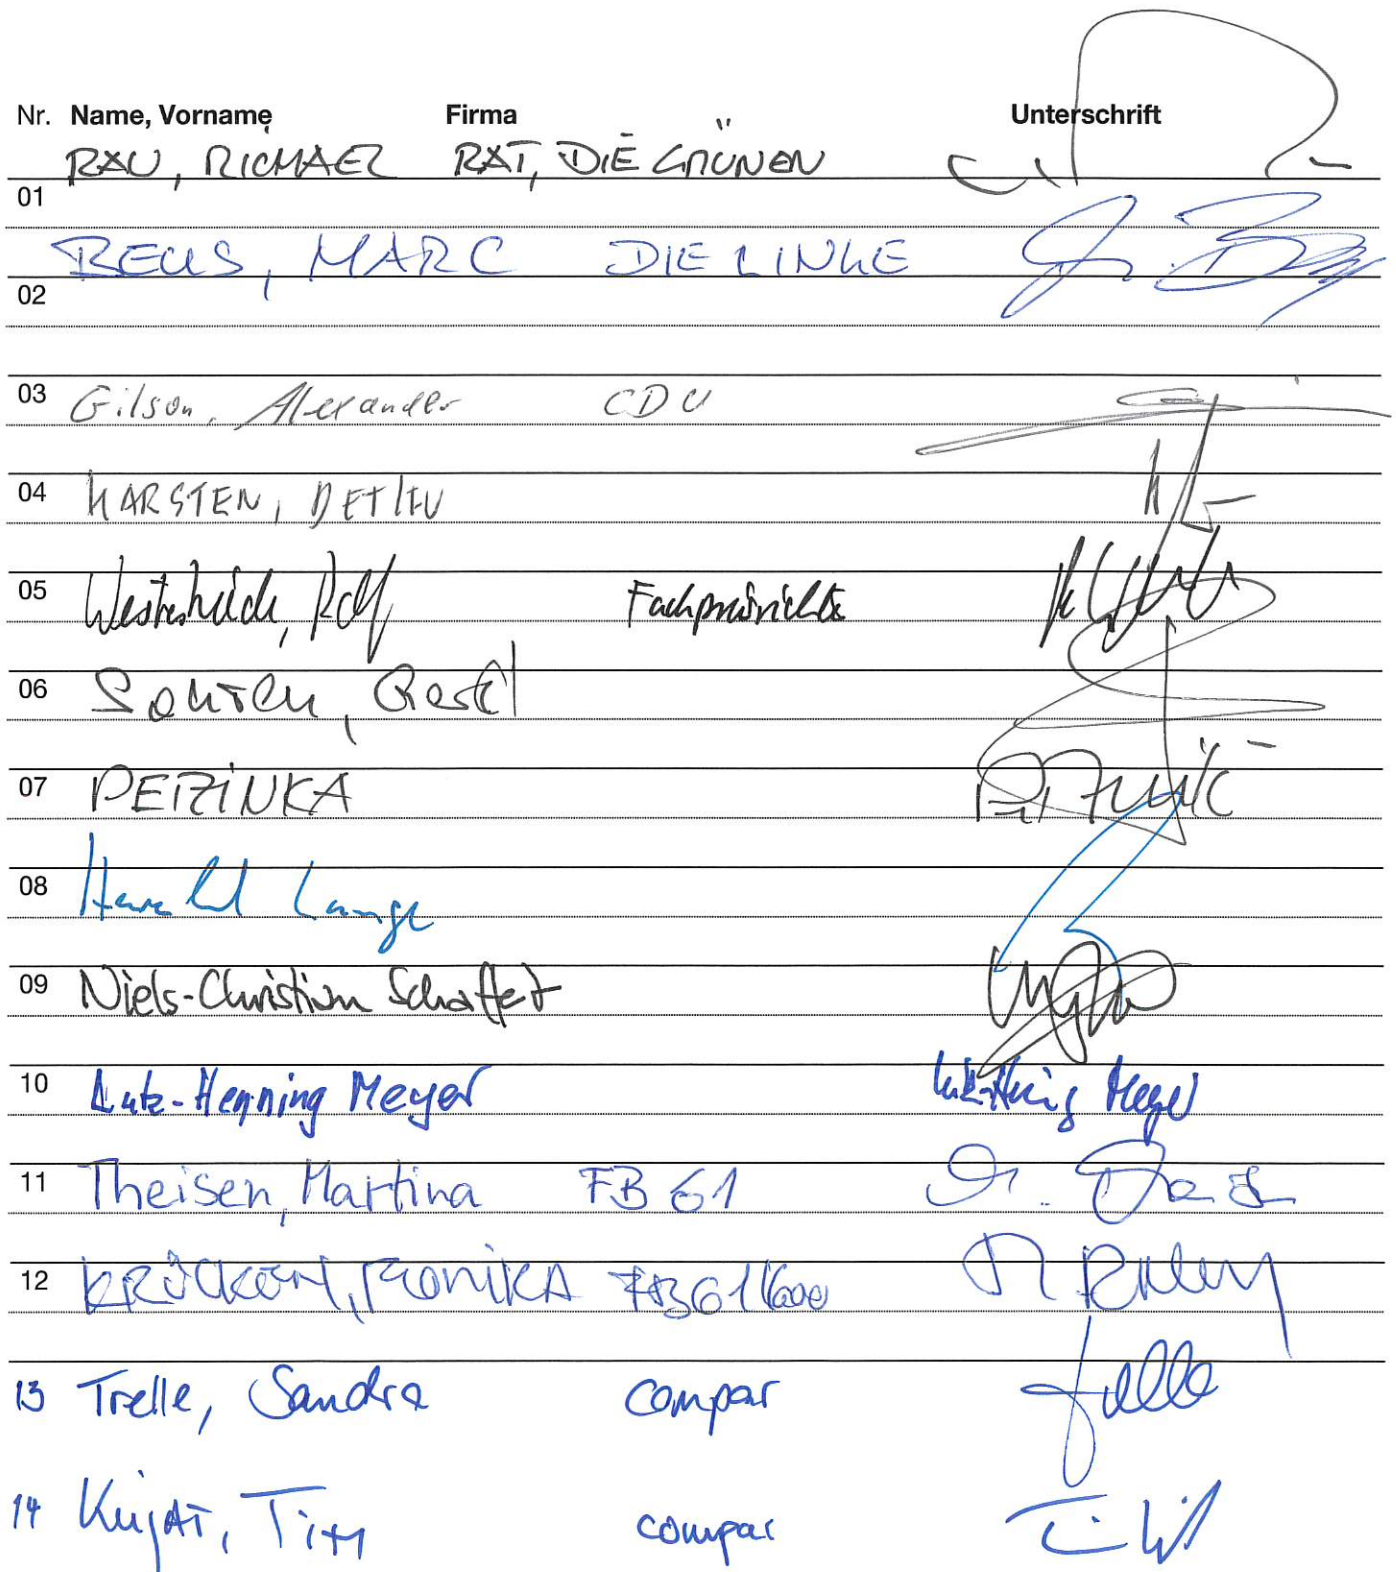 Nr. Name, Vorname Firma Unterschrift
RAU, MICHAEL RAT, DIE GRÜNEN
01
BEUS, MARC DIE LINKE
02
03 Gilson, Alexander CDU
04 KARSTEN, DETLEV
05 Westerheide, Rolf
06
07 PETZINKA
08 Harald Lange
09 Niels-Christian Schaffert
10 Lutz-Henning Meyer Lutz-Henning Meyer
11 Theisen, Martina FB 61
12 KRÜCKEN, MONIKA FB61/600
13 Trelle, Sandra compar Trelle
14 Kujat, Tim compar